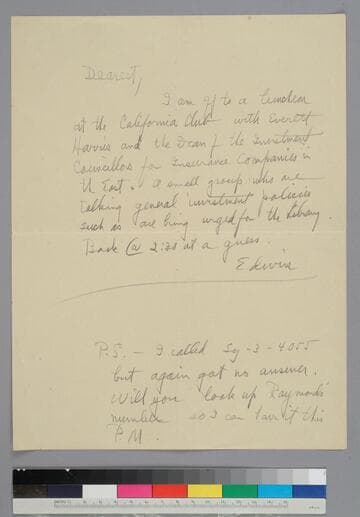 Dearest,
I am off to a luncheon
at the California Club with Everett
Harris and the Dean of the Investment
Councillors for Insurance Companies in
the East. A small group who are
talking general investment policies
such as are being urged for the Library.
Back @ 2:30 at a guess.
Edwin
P.S. — I called Sy-3-4055
but again got no answer.
Will you look up Raymond's
number so I can try it this
P.M.